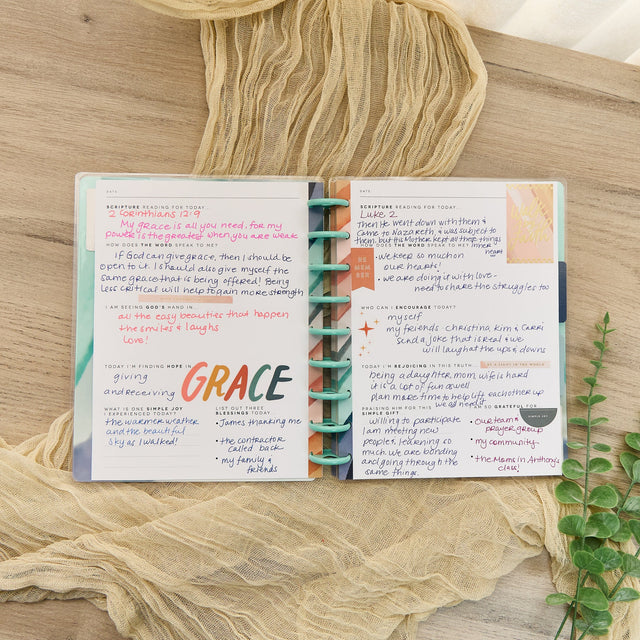 DATE
SCRIPTURE READING FOR TODAY...
2 Corinthians 12:9
My grace is all you need, for my
power is the greatest when you are weak
HOW DOES THE WORD SPEAK TO ME?
If God can give grace, then I should be
open to it. I should also give myself the
same grace that is being offered! Being
less critical will help to gain more strength
I AM SEEING GOD'S HAND IN...
all the easy beauties that happen
the smiles & laughs
love!
TODAY I'M FINDING HOPE IN
giving
and receiving
GRACE
WHAT IS ONE SIMPLE JOY
I EXPERIENCED TODAY?
the warmer weather
and the beautiful
sky as I walked!
LIST OUT THREE
BLESSINGS TODAY...
• James thanking me
• the contractor
called back
• my family &
friends
DATE
SCRIPTURE READING FOR TODAY...
Luke 2
Then He went down with them &
came to Nazareth & was subject to
them, but his Mother kept all these things
inner
heart
HOW DOES THE WORD SPEAK TO ME?
RE
MEM
BER
• we keep so much on
our heart!
• we are doing it with love-
need to share the struggles too
WHO CAN I ENCOURAGE TODAY?
myself
my friends christina, kim & carri
send a joke that is real & we
will laugh at the ups & downs
TODAY I'M REJOICING IN THIS TRUTH...
BE A LIGHT IN THE WORLD
being a daughter, mom, wife is hard
it is a lot of fun as well
plan more time to help lift each other up
we all need it
PRAISING HIM FOR THIS
SIMPLE GIFT
willing to participate
I am meeting new
people, learning so
much we are bonding
and going through the
same things.
SO GRATEFUL FOR
SIMPLE JOY
• our team &
prayer group
• my community
• the Moms in Anthony's
class!